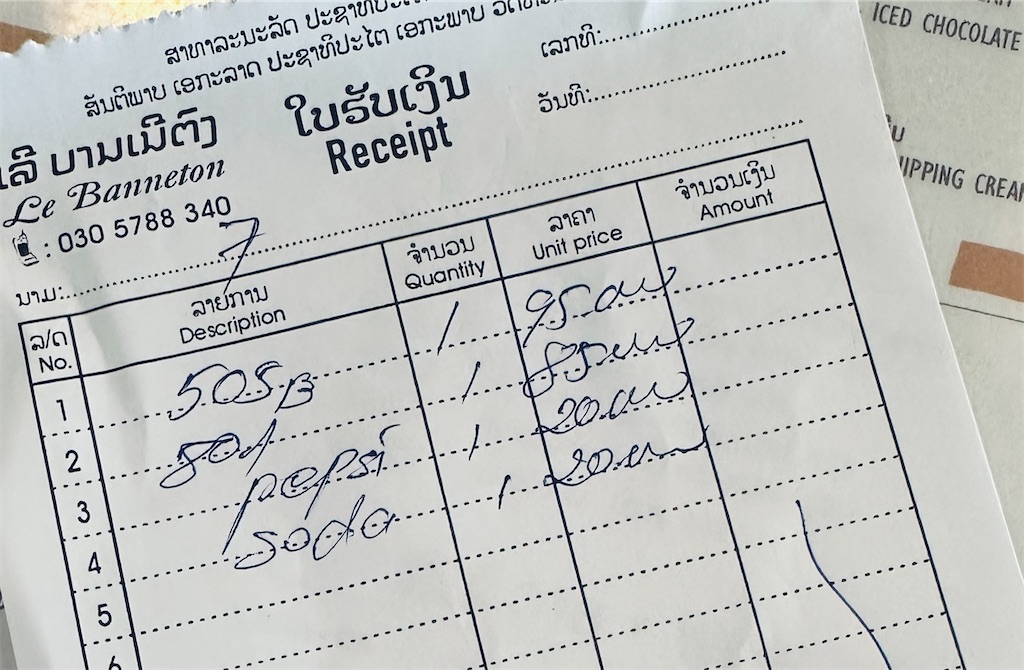 ສາທາລະນະລັດ ປະຊາທິປະໄຕ
ສັນຕິພາບ ເອກະລາດ ປະຊາທິປະໄຕ ເອກະພາບ
ເລີ ບານເນີຕົງ
Le Banneton
: 030 5788 340
ໃບຮັບເງິນ
Receipt
ເລກທີ:
ວັນທີ:
ນາມ: 7
ລ/ດ ລາຍການ ຈຳນວນ ລາຄາ ຈຳນວນເງິນ
No. Description Quantity Unit price Amount
1 505B 1 95.000
2 501 1 85.000
3 pepsi 1 20.000
4 soda 1 20.000
5
6
ICED CHOCOLATE
IPPING CREAM